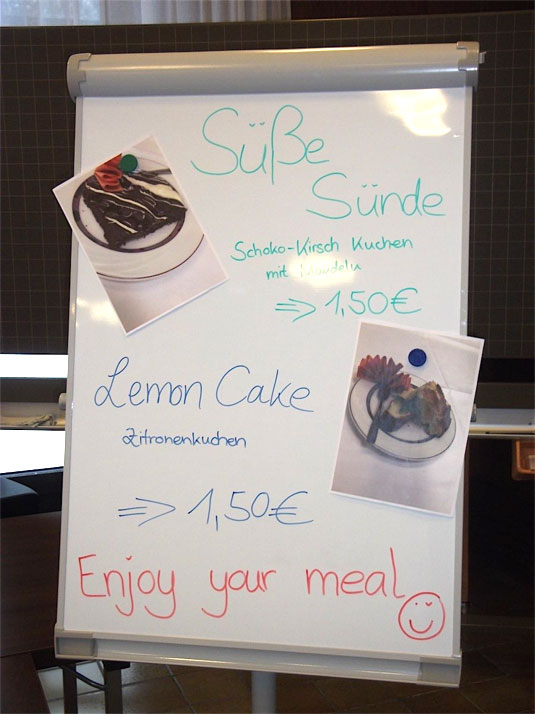 Süße
Sünde
Schoko-Kirsch Kuchen
mit Mandeln
⇒ 1,50€
Lemon Cake
Zitronenkuchen
⇒ 1,50€
Enjoy your meal